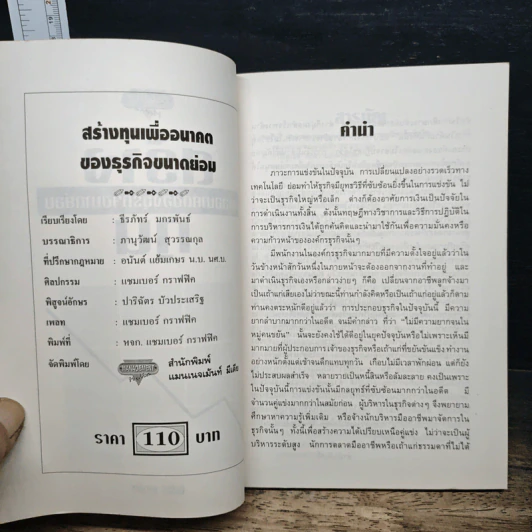 สร้างทุนเพื่ออนาคต
ของธุรกิจขนาดย่อม
เรียบเรียงโดย : ธีรภัทร์ มกรพันธ์
บรรณาธิการ : ภานุวัฒน์ สุวรรณกุล
ที่ปรึกษากฎหมาย : อนันต์ แย้มเกษร น.บ. นศ.บ.
ศิลปกรรม : แชมเบอร์ กราฟฟิค
พิสูจน์อักษร : ปาริฉัตร บัวประเสริฐ
เพลท : แชมเบอร์ กราฟฟิค
พิมพ์ที่ : หจก. แชมเบอร์ กราฟฟิค
จัดพิมพ์โดย : สำนักพิมพ์
แมนเนจเม้นท์ มีเดีย
ราคา 110 บาท
คำนำ
ภาวะการแข่งขันในปัจจุบัน การเปลี่ยนแปลงอย่างรวดเร็วทาง
เทคโนโลยี ย่อมทำให้ธุรกิจมียุทธวิธีที่ซับซ้อนยิ่งขึ้นในการแข่งขัน ไม่
ว่าจะเป็นธุรกิจใหญ่หรือเล็ก ต่างก็ต้องอาศัยการเงินเป็นปัจจัยใน
การดำเนินงานทั้งสิ้น ดังนั้นทฤษฎีทางวิชาการและวิธีการปฏิบัติใน
การบริหารการเงินได้ถูกค้นคิดและนำมาใช้กันเพื่อความมั่นคงหรือ
ความก้าวหน้าขององค์กรธุรกิจนั้นๆ
มีพนักงานในองค์กรธุรกิจมากมายที่มีความตั้งใจอยู่แล้วว่าใน
วันข้างหน้าสักวันหนึ่งในภายหน้าจะต้องออกจากงานที่ทำอยู่ และ
มาดำเนินธุรกิจเองหรือกล่าวง่ายๆ ก็คือ เปลี่ยนจากอาชีพลูกจ้างมา
เป็นเถ้าแก่เสียเองไม่ว่าขณะนี้ท่านกำลังคิดหรือเป็นเถ้าแก่อยู่แล้วก็ตาม
ท่านคงตระหนักดีอยู่แล้วว่า การประกอบธุรกิจในปัจจุบันนี้ มีความ
ยากลำบากมากกว่าในอดีต จนมีคำกล่าว ที่ว่า "ไม่มีความยากจนใน
หมู่คนขยัน" นั้นจะยังคงใช้ได้ดีอยู่ในยุคปัจจุบันหรือไม่เพราะเห็นมี
มากมายที่ผู้ประกอบการเจ้าของธุรกิจหรือเถ้าแก่ที่ขยันขันแข็ง ทำงาน
อย่างหนักตั้งแต่เช้าจนดึกแทบทุกวัน เกือบไม่มีเวลาพักผ่อน แต่ก็ยัง
ไม่ประสบผลสำเร็จ หลายรายเป็นหนี้สินหรือล้มละลาย คงเป็นเพราะ
ในปัจจุบันนี้การแข่งขันนั้นมีกลยุทธ์ที่ซับซ้อนมากกว่าในอดีต มี
จำนวนคู่แข่งมากกว่าในสมัยก่อน ผู้บริหารในธุรกิจต่างๆ จึงพยายาม
ศึกษาหาความรู้เพิ่มเติม หรือจ้างนักบริหารมืออาชีพมาจัดการใน
ธุรกิจนั้นๆ ทั้งนี้เพื่อสร้างความได้เปรียบเหนือคู่แข่ง ไม่ว่าจะเป็นผู้
บริหารระดับสูง นักการตลาดมืออาชีพหรือเถ้าแก่ธรรมดาที่ไม่ได้